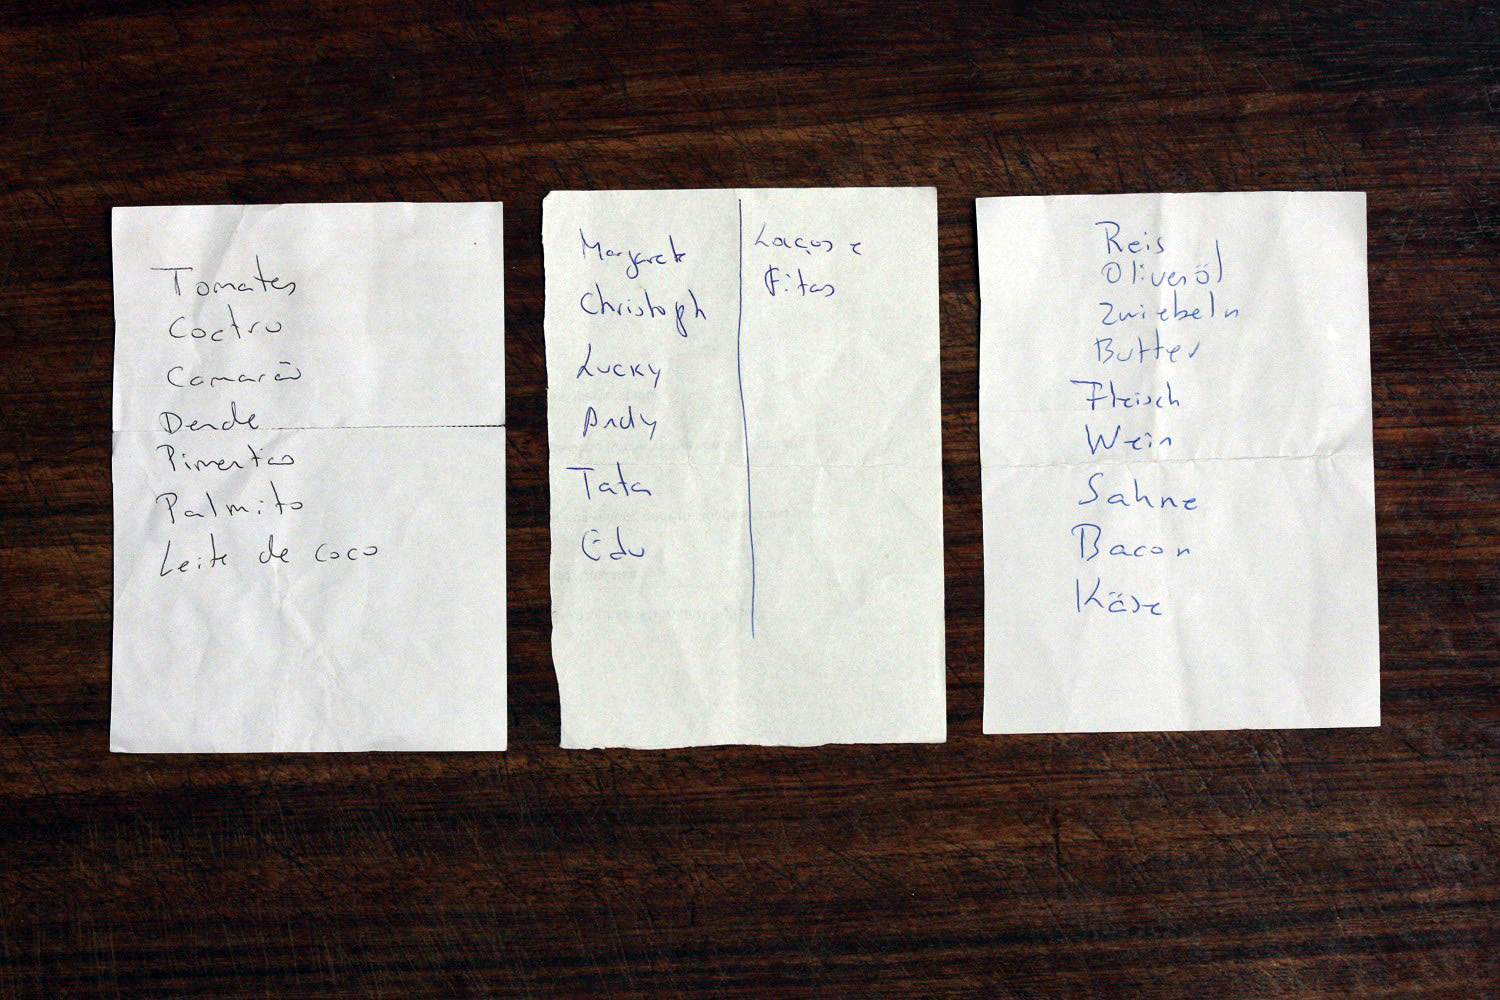 Tomates
Coctro
Camarão
Dende
Pimentão
Palmito
Leite de coco
Margarete
Christoph
Lucky
Andy
Tata
Edu
Laços e
Fitas
Reis
Olivenöl
Zwiebeln
Butter
Fleisch
Wein
Sahne
Bacon
Käse